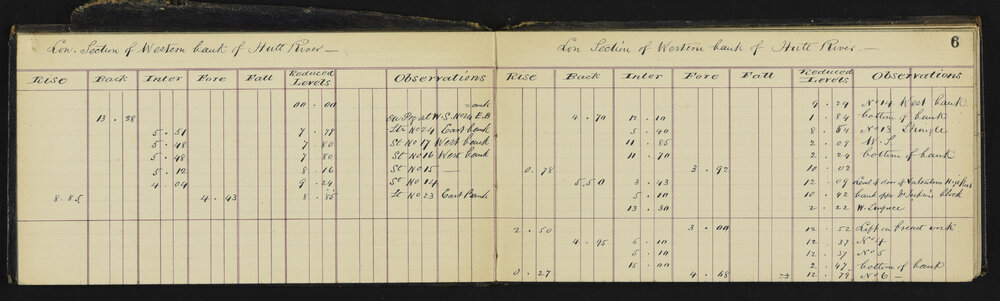 Lon. Section of Western bank of Hutt River —
Rise Back Inter Fore Fall Reduced Levels Observations
00 . 00 bank
13 . 28 On Peg at W.S. No 24 E.B
5 . 51 7 . 77 St No 24 East bank
5 . 48 7 . 80 St No 17 West bank
5 . 48 7 . 80 St No 16 West bank
5 . 12 8 . 16 St No 15 —
4 . 04 9 . 24 St No 14
8.85 4 . 43 8 . 85 St No 23 East Bank
6
Lon Section of Western bank of Hutt River —
Rise Back Inter Fore Fall Reduced Levels Observations
9 . 24 No 14 West bank
4 . 70 12 . 10 1 . 84 bottom of bank
5 . 40 8 . 54 No 13 Shingle
11 . 85 2 . 09 W. S.
11 . 70 2 . 24 bottom of bank
0.78 3 . 92 10 . 02
5.50 3 . 43 12 . 09 of door of Valentine
5 . 10 10 . 42 bank oppo Mr block
13 . 30 2 . 22 W. Surface
2 . 50 3 . 00 12 . 52 on breast work
4 . 95 5 . 10 12 . 37 No 4
5 . 10 12 . 37 No 5
15 . 00 2 . 47 bottom of bank
0 . 27 4 . 68 12 . 79 No 6 —